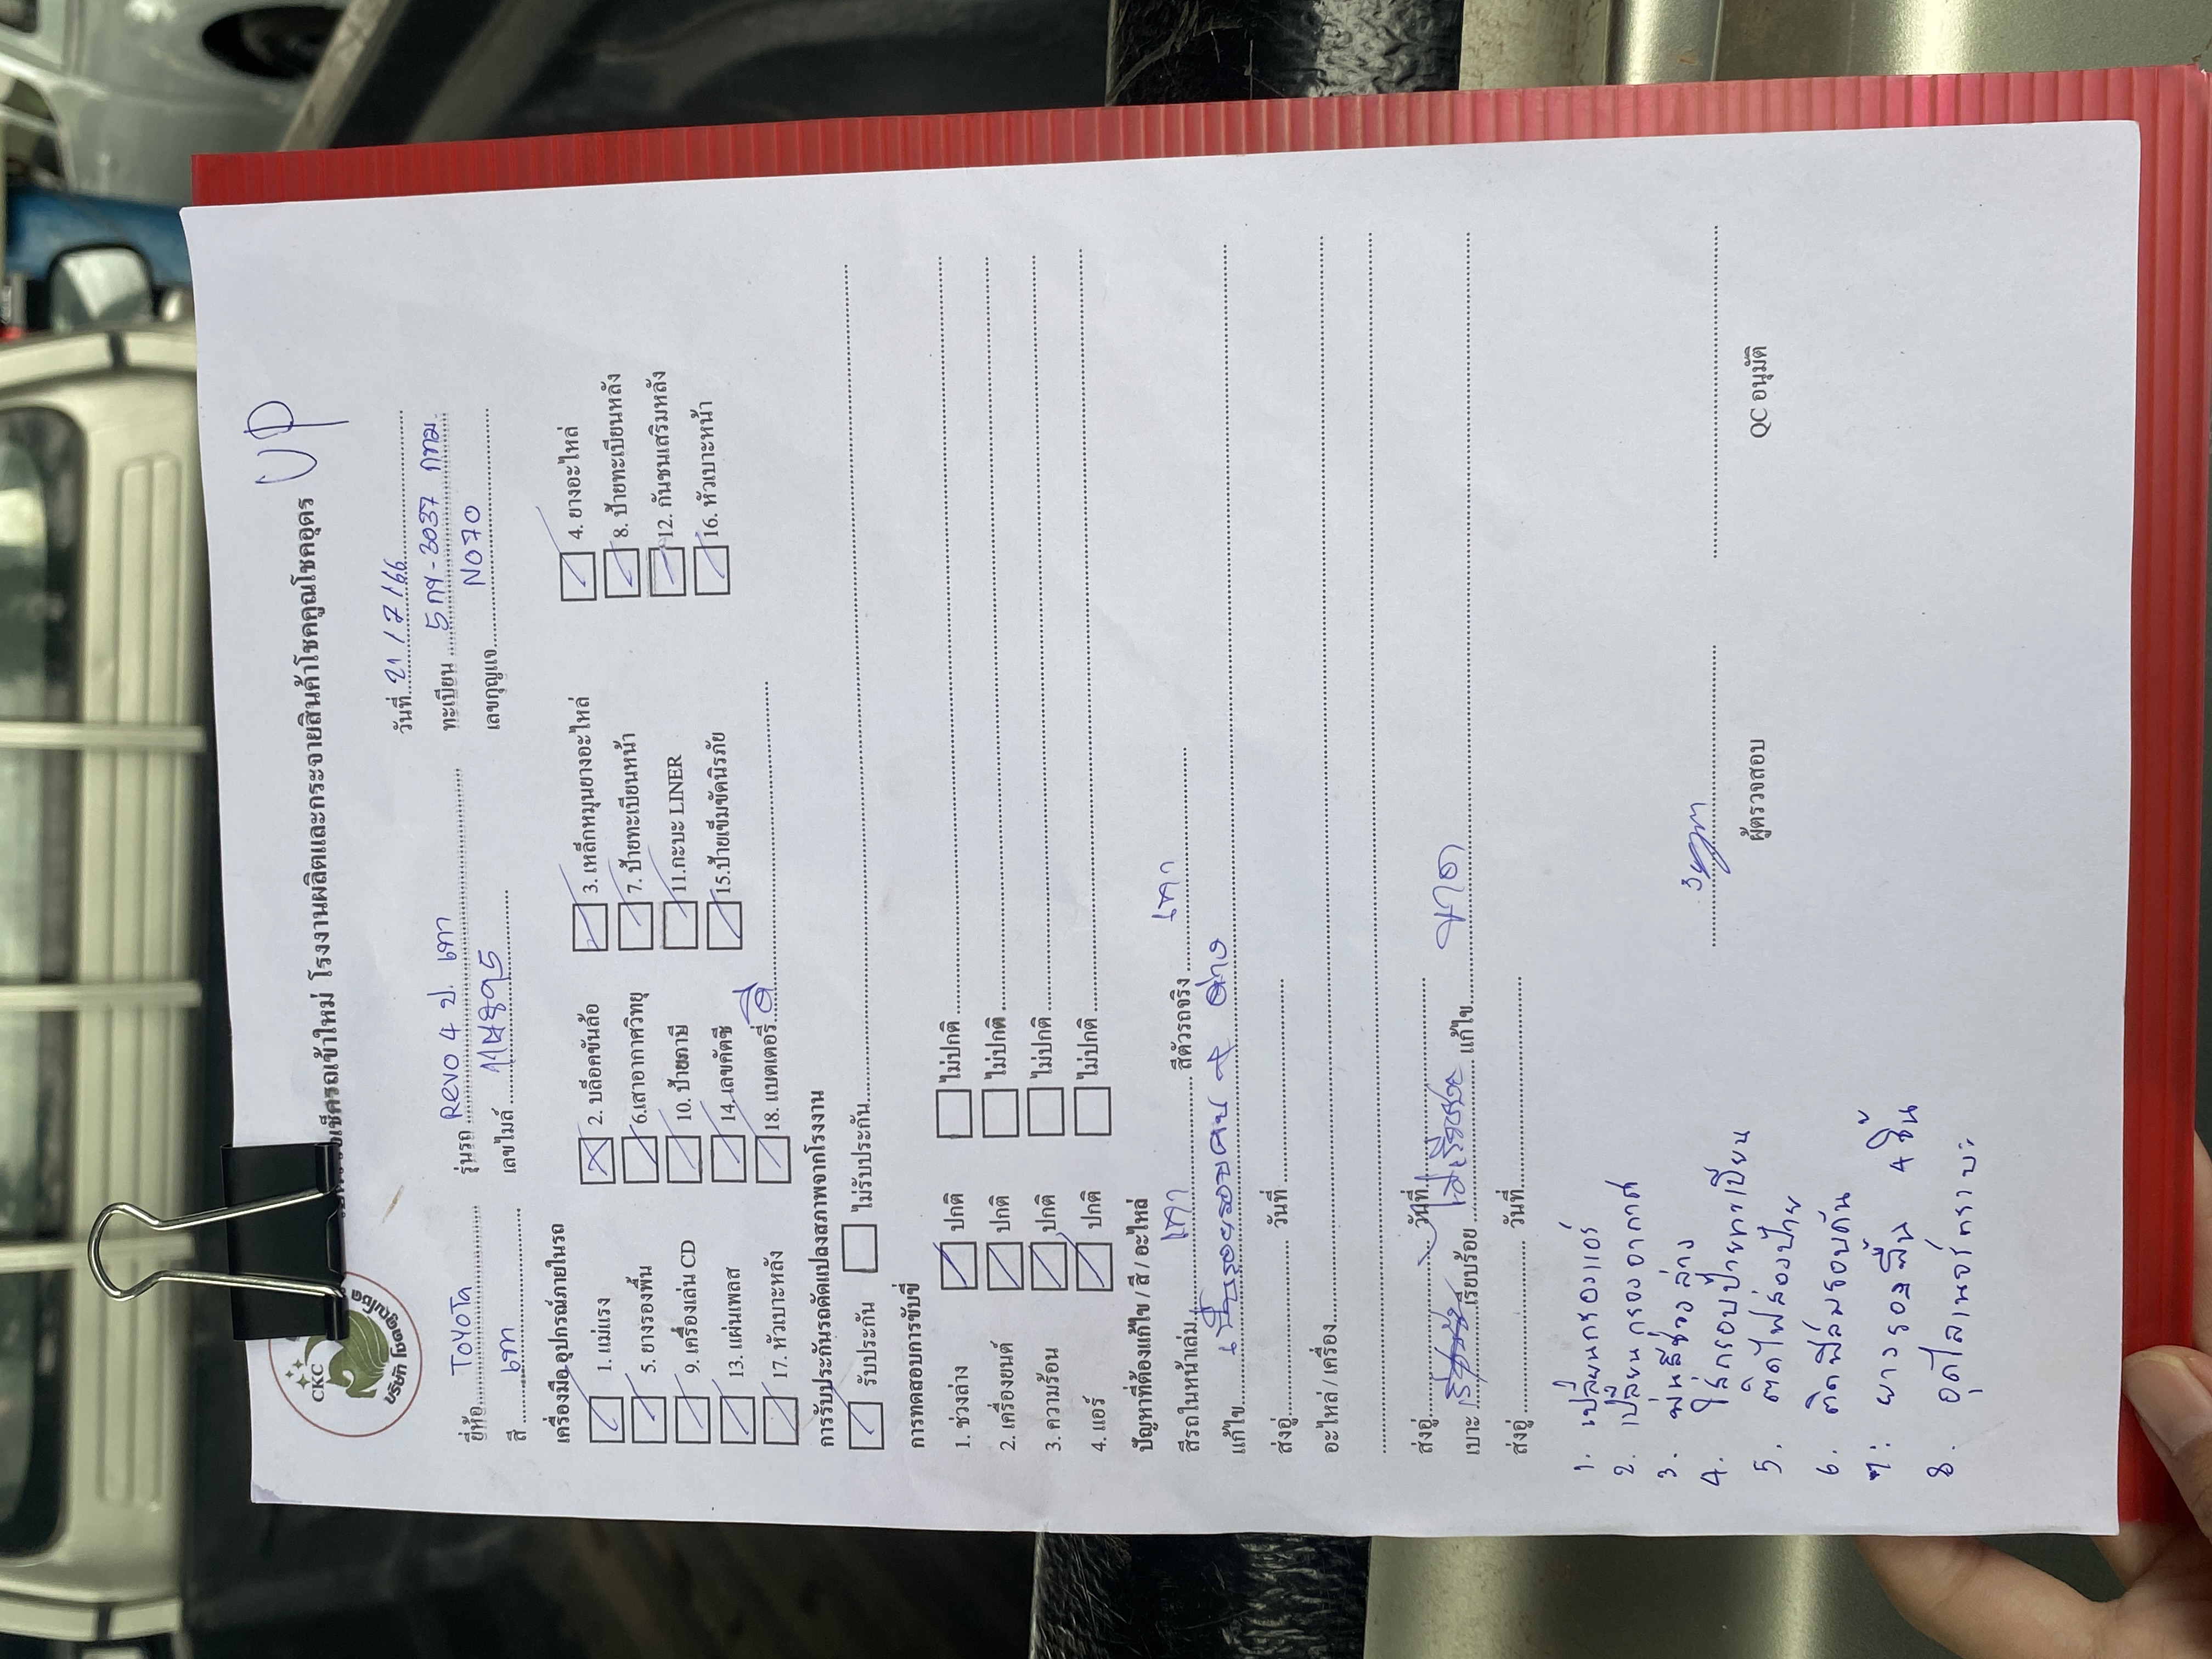 CKC
บริษัท โชคคูณโชค
เช็ครถเข้าใหม่ โรงงานผลิตและกระจายสินค้าโชคคูณโชคอุดร UP
วันที่ 21/7/66
ยี่ห้อ TOYOTA รุ่นรถ Revo 4 ป. เทา ทะเบียน 5กฯ-3037 กทม
สี เทา เลขไมล์ เลขกุญแจ N070
เครื่องมือ อุปกรณ์ภายในรถ
1. แม่แรง 2. บล็อคขันล้อ 3. เหล็กหมุนยางอะไหล่ 4. ยางอะไหล่
5. ยางรองพื้น 6.เสาอากาศวิทยุ 7. ป้ายทะเบียนหน้า 8. ป้ายทะเบียนหลัง
9. เครื่องเล่น CD 10. ป้ายภาษี 11.กะบะ LINER 12. กันชนเสริมหลัง
13. แผ่นเพลส 14.เลขคัดซี 15.ป้ายเข็มขัดนิรภัย 16. หัวเบาะหน้า
17. หัวเบาะหลัง 18. แบตเตอรี่ ดี
การรับประกันรถดัดแปลงสภาพจากโรงงาน
รับประกัน ไม่รับประกัน
การทดสอบการขับขี่
1. ช่วงล่าง ปกติ ไม่ปกติ
2. เครื่องยนต์ ปกติ ไม่ปกติ
3. ความร้อน ปกติ ไม่ปกติ
4. แอร์ ปกติ ไม่ปกติ
ปัญหาที่ต้องแก้ไข / สี / อะไหล่
สีรถในหน้าเล่ม เทา สีตัวรถจริง เทา
แก้ไข
ส่งอู่ วันที่
อะไหล่ / เครื่อง
ส่งอู่ วันที่
เบาะ เรียบร้อย ไม่เรียบร้อย แก้ไข ขาด
ส่งอู่ วันที่
1. เปลี่ยนกรองแอร์
2. เปลี่ยนกรองอากาศ
3. พ่นสีช่วงล่าง
4. ใส่กรอบป้ายทะเบียน
5. ติดไฟส่องป้าย
6. ติดฟิล์มรอบคัน
7. ยางรองพื้น 4 ชิ้น
8. อุดไลเนอร์กระบะ
ผู้ตรวจสอบ QC อนุมัติ